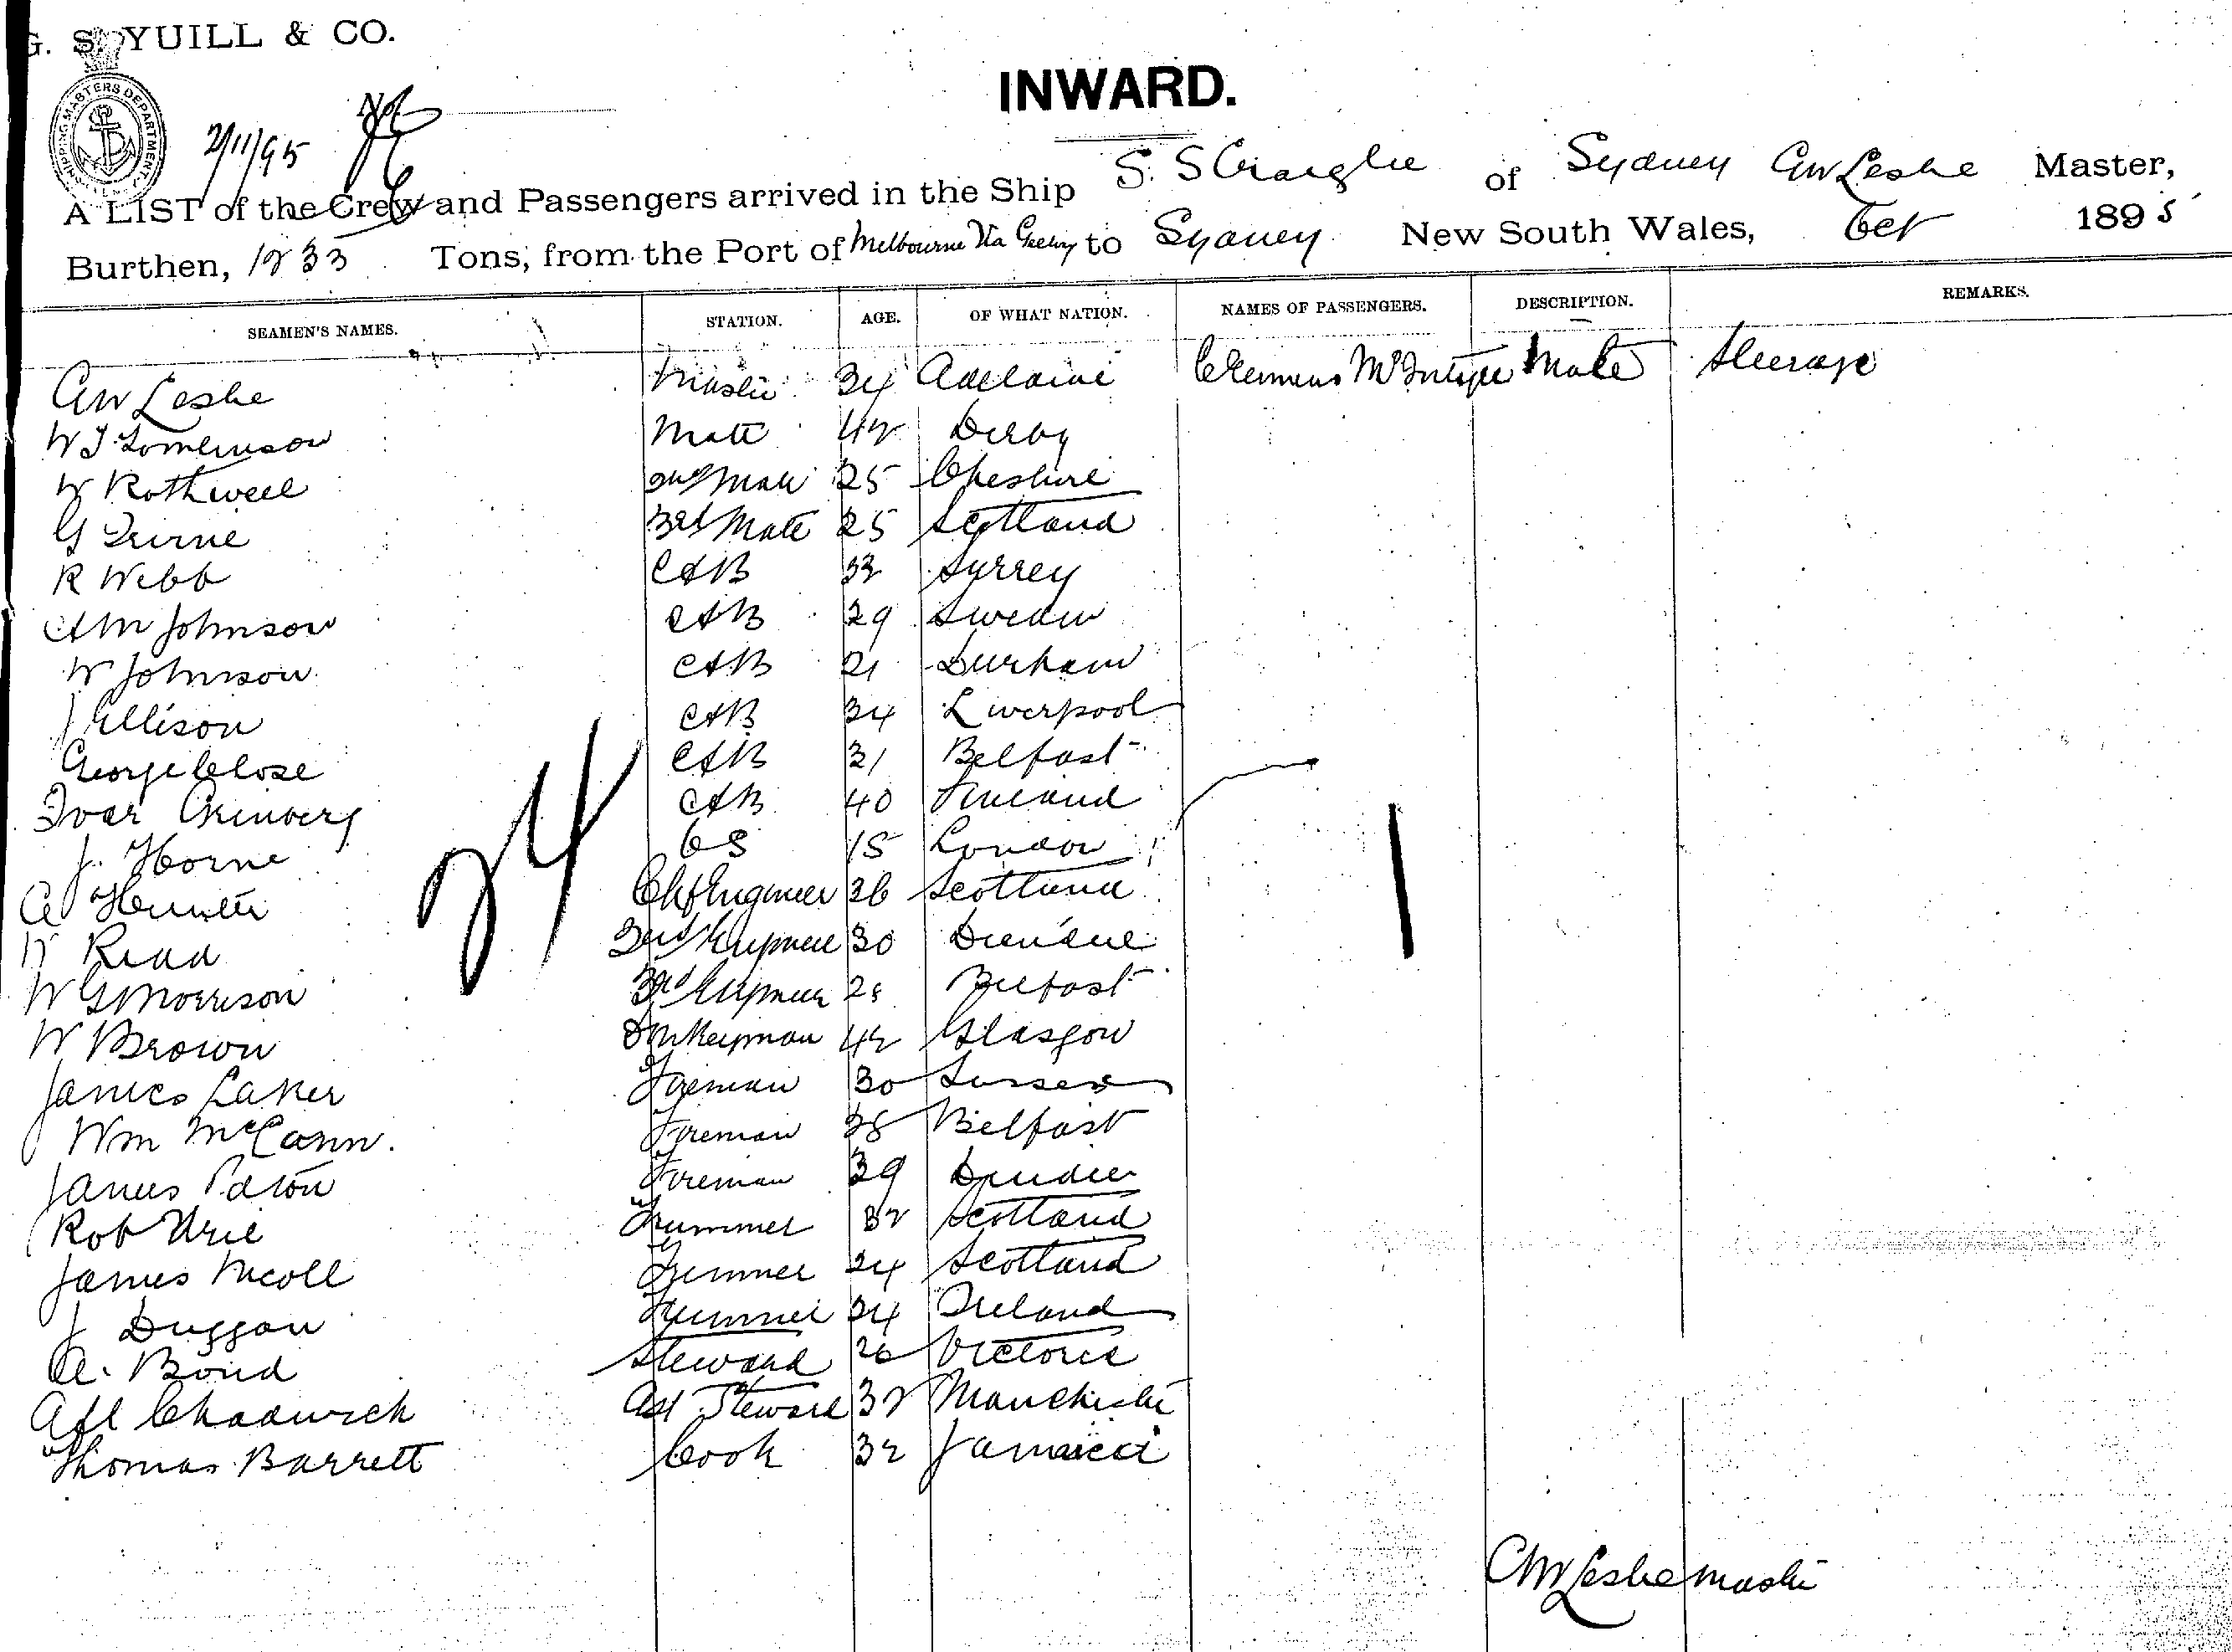 G. S. YUILL & CO.
INWARD.
SHIPPING MASTERS DEPARTMENT
2/11/95
A LIST of the Crew and Passengers arrived in the Ship S. S Craiglee of Sydney AW Leslie Master,
Burthen, 1833 Tons, from the Port of Melbourne Via to Sydney New South Wales, Oct 1895
SEAMEN'S NAMES. STATION. AGE. OF WHAT NATION. NAMES OF PASSENGERS. DESCRIPTION. REMARKS.
AW Leslie Master 34 Adelaide McIntyre Male Steerage
W J Tomlinson Mate 42 Derby
W Rothwell 2nd Mate 25 Cheshire
G 3rd Mate 25 Scotland
R Webb AB 32 Surrey
AM Johnson AB 29 Sweden
W Johnson AB 21 Durham
J Ellison AB 34 Liverpool
George Close AB 31 Belfast
Ivar AB 40 Finland
J. Horne OS 18 London
A Hunter Chf Engineer 36 Scotland
W Read 2nd Engineer 30 Dundee
W G Morrison 3rd Engineer 28 Belfast
W Brown Donkeyman 42 Glasgow
James Laker Fireman 30 Sussex
Wm McCann. Fireman 38 Belfast
James Paton Fireman 39 Dundee
Rob Urie Trimmer 32 Scotland
James Nicoll Trimmer 24 Scotland
J Duggan Trimmer 24 Ireland
A. Bond Steward 26 Victoria
Alf Chadwick Ast Steward 32 Manchester
Thomas Barrett Cook 32 Jamaica
24
1
AW Leslie Master